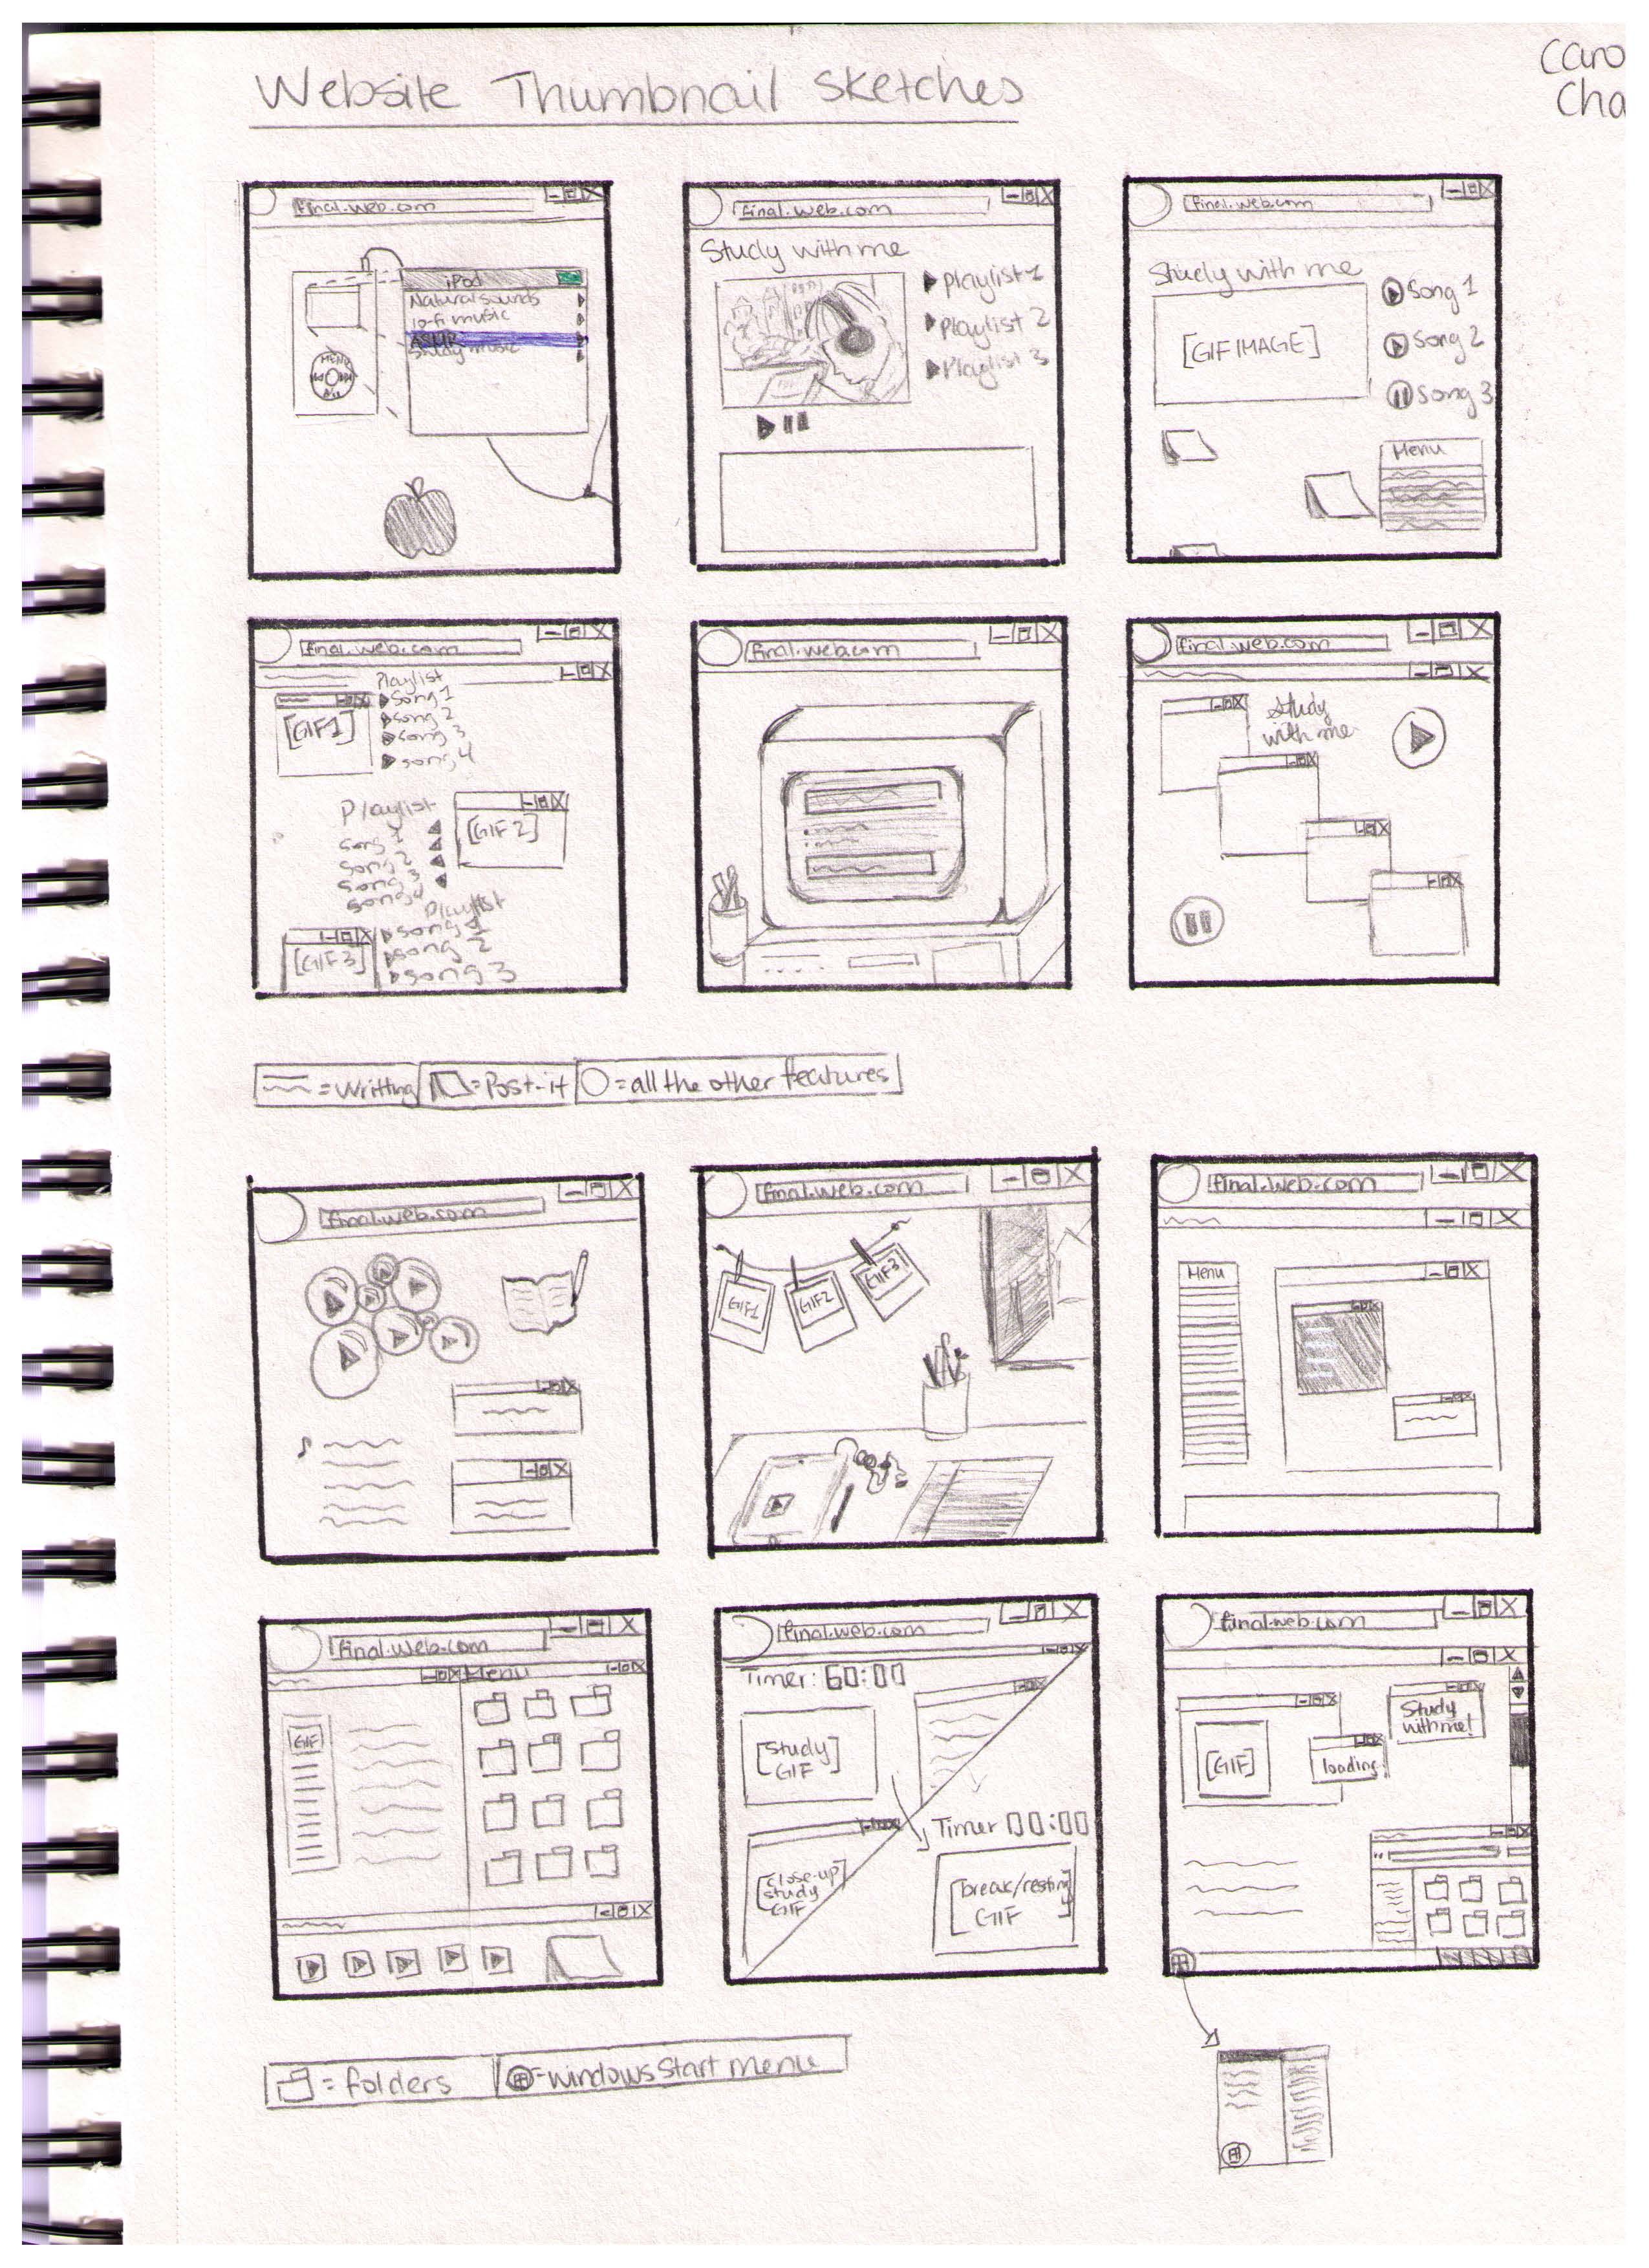 Website Thumbnail Sketches
Caro
Cha
final.web.com
iPod
Natural sounds
lo-fi music
ASMR
Study music
MENU
final.web.com
Study with me
playlist 1
playlist 2
Playlist 3
final.web.com
Study with me
[GIF IMAGE]
Song 1
Song 2
Song 3
Menu
final.web.com
Playlist
Song 1
song 2
song 3
song 4
[GIF1]
Playlist
song 1
song 2
song 3
song 4
[GIF2]
Playlist
song 1
song 2
song 3
[GIF3]
final.web.com
final.web.com
Study
with me
=Writting
=Post-it
=all the other features
final.web.com
final.web.com
GIF1
GIF2
GIF3
final.web.com
Menu
final.web.com
Menu
GIF
final.web.com
Timer: 60:00
[Study
GIF]
Timer 00:00
[close-up
study
GIF]
[break/resting
GIF]
final.web.com
Study
with me!
[GIF]
loading
= folders
=windows start menu